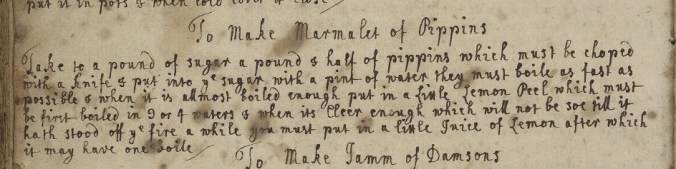 put it in pots & when cold cover it close
To Make Marmalet of Pippins
Take to a pound of sugar a pound & half of pippins which must be choped
with a knife & put into yͤ sugar with a pint of water they must boile as fast as
possible & when it is allmost boiled enough put in a little Lemon Peel which must
be first boiled in 3 or 4 waters & when its Cleer enough which will not be soe till it
hath stood off yͤ fire a while you must put in a little Juice of Lemon after which
it may have one boile
To Make Jamm of Damsons